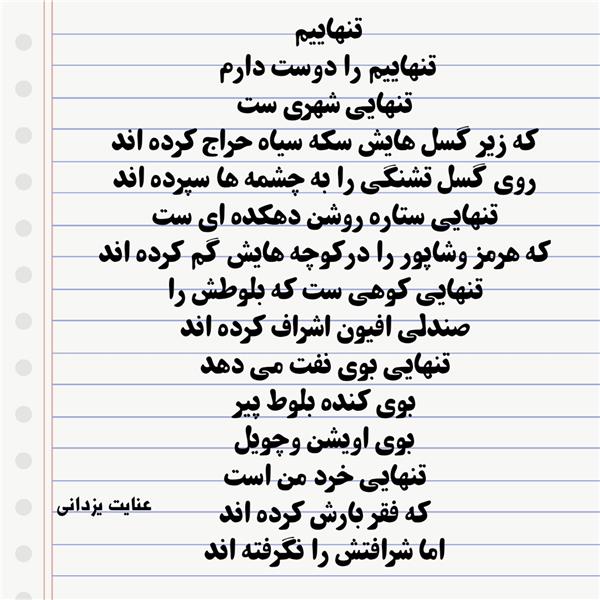 تنهاییم
تنهاییم را دوست دارم
تنهایی شهری ست
که زیر گسل هایش سکه سیاه حراج کرده اند
روی گسل تشنگی را به چشمه ها سپرده اند
تنهایی ستاره روشن دهکده ای ست
که هرمز وشاپور را درکوچه هایش گم کرده اند
تنهایی کوهی ست که بلوطش را
صندلی افیون اشراف کرده اند
تنهایی بوی نفت می دهد
بوی کنده بلوط پیر
بوی اویشن وچویل
تنهایی خرد من است
که فقر بارش کرده اند
اما شرافتش را نگرفته اند
عنایت یزدانی